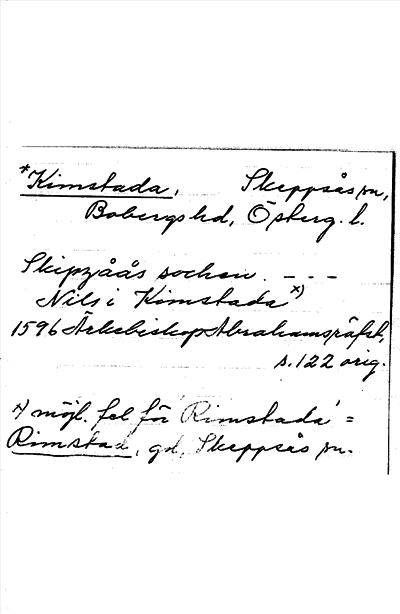 *Kimstada, Skeppsås sn,
Bobergs hd, Österg. l.
Skipzåås sochen. - - -
Nils i Kimstada x)
1596 Ärkebiskop Abrahams räfst,
s. 122 orig.
x) möjl. fel för 'Rimstada' =
Rimstad, gd, Skeppsås sn.